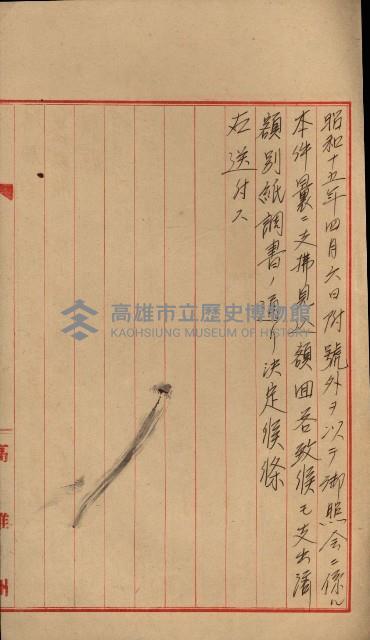 昭和十五年四月六日附號外ヲ以テ御照会ニ係ル
本件曩ニ支拂見込額回答致候モ支出済
額別紙調書ノ通リ決定候條
右送付ス
高雄州
高雄市立歷史博物館
KAOHSIUNG MUSEUM OF HISTORY